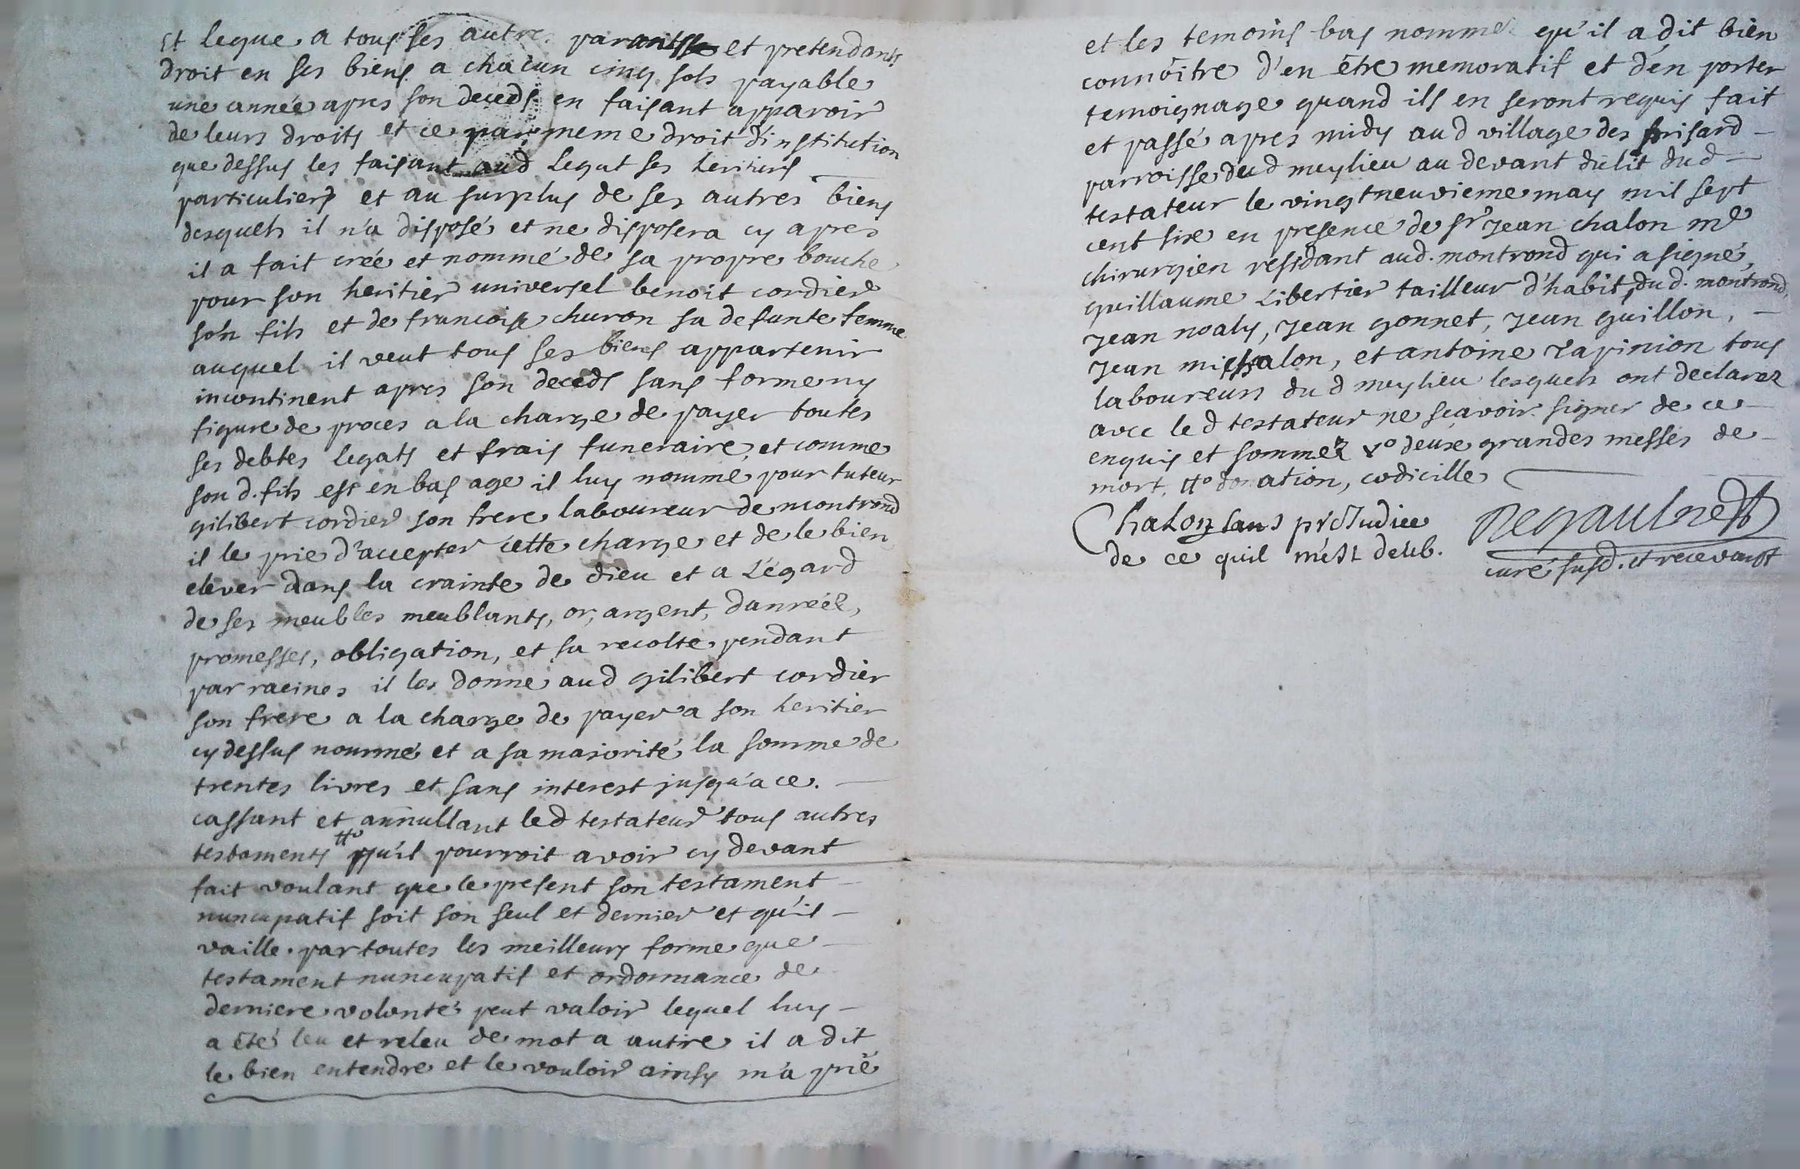 Et legue a tous ses autres parants et pretendants
droit en ses biens a chacun cinq sols payable
une année apres son deceds en faisant apparoir
de leurs droits et ce par meme droit d'institution
que dessus les faisant aud legat ses heritiers
particuliers et au surplus de ses autres biens
desquels il n'a disposé et ne disposera cy apres
il a fait créé et nommé de sa propre bouche
pour son heritier universel benoit cordier
son fils et de francoise churon sa defunte femme
auquel il veut tous ses biens appartenir
incontinent apres son deceds sans forme ny
figure de proces a la charge de payer toutes
ses debtes legats et frais funeraire, et comme
son d. fils est en bas age il luy nomme pour tuteur
gilibert cordier son frere laboureur de montrond
il le prie d'accepter cette charge et de le bien
elever dans la crainte de dieu et a l'égard
de ses meubles meublants, or, argent, danréés,
promesses, obligation, et sa recolte pendant
par racines il les donne aud gilibert cordier
son frere a la charge de payer a son heritier
cy dessus nommé et a sa majorité la somme de
trentes livres et sans interest jusqu'a ce. —
cassant et annullant led testateur tous autres
testaments #o qu'il pourroit avoir cy devant
fait voulant que le present son testament —
nuncupatif soit son seul et dernier et qu'il —
vaille par toutes les meilleurs forme que —
testament nuncupatif et ordonnance de
derniere volonté peut valoir lequel luy —
a été leu et releu de mot a autre il a dit
le bien entendre et le vouloir ainsy m'a prié
et les temoins bas nommé qu'il a dit bien
connoitre d'en être memoratif et d'en porter
temoignage quand ils en seront requis fait
et passé apres midy aud village des frisard —
parroisse dud meylieu au devant du lit dud —
testateur le vingt neuvieme may mil sept
cent sixe en presence de sr jean chalon me
chirurgien residant aud. montrond qui a signé,
guillaume Libertier tailleur d'habit, dud. montrond,
jean noaly, jean gonnet, jean guillon, —
jean michalon, et antoine rapinion tous
laboureurs dud meylieu lesquels ont declarez
avec led testateur ne sçavoir signer de ce —
enquis et sommez xo deuxe grandes messes de —
mort, #o donation, codicille
Chalon sans prejudice
de ce quil m'est deub.
Regault
curé susd. et recevant